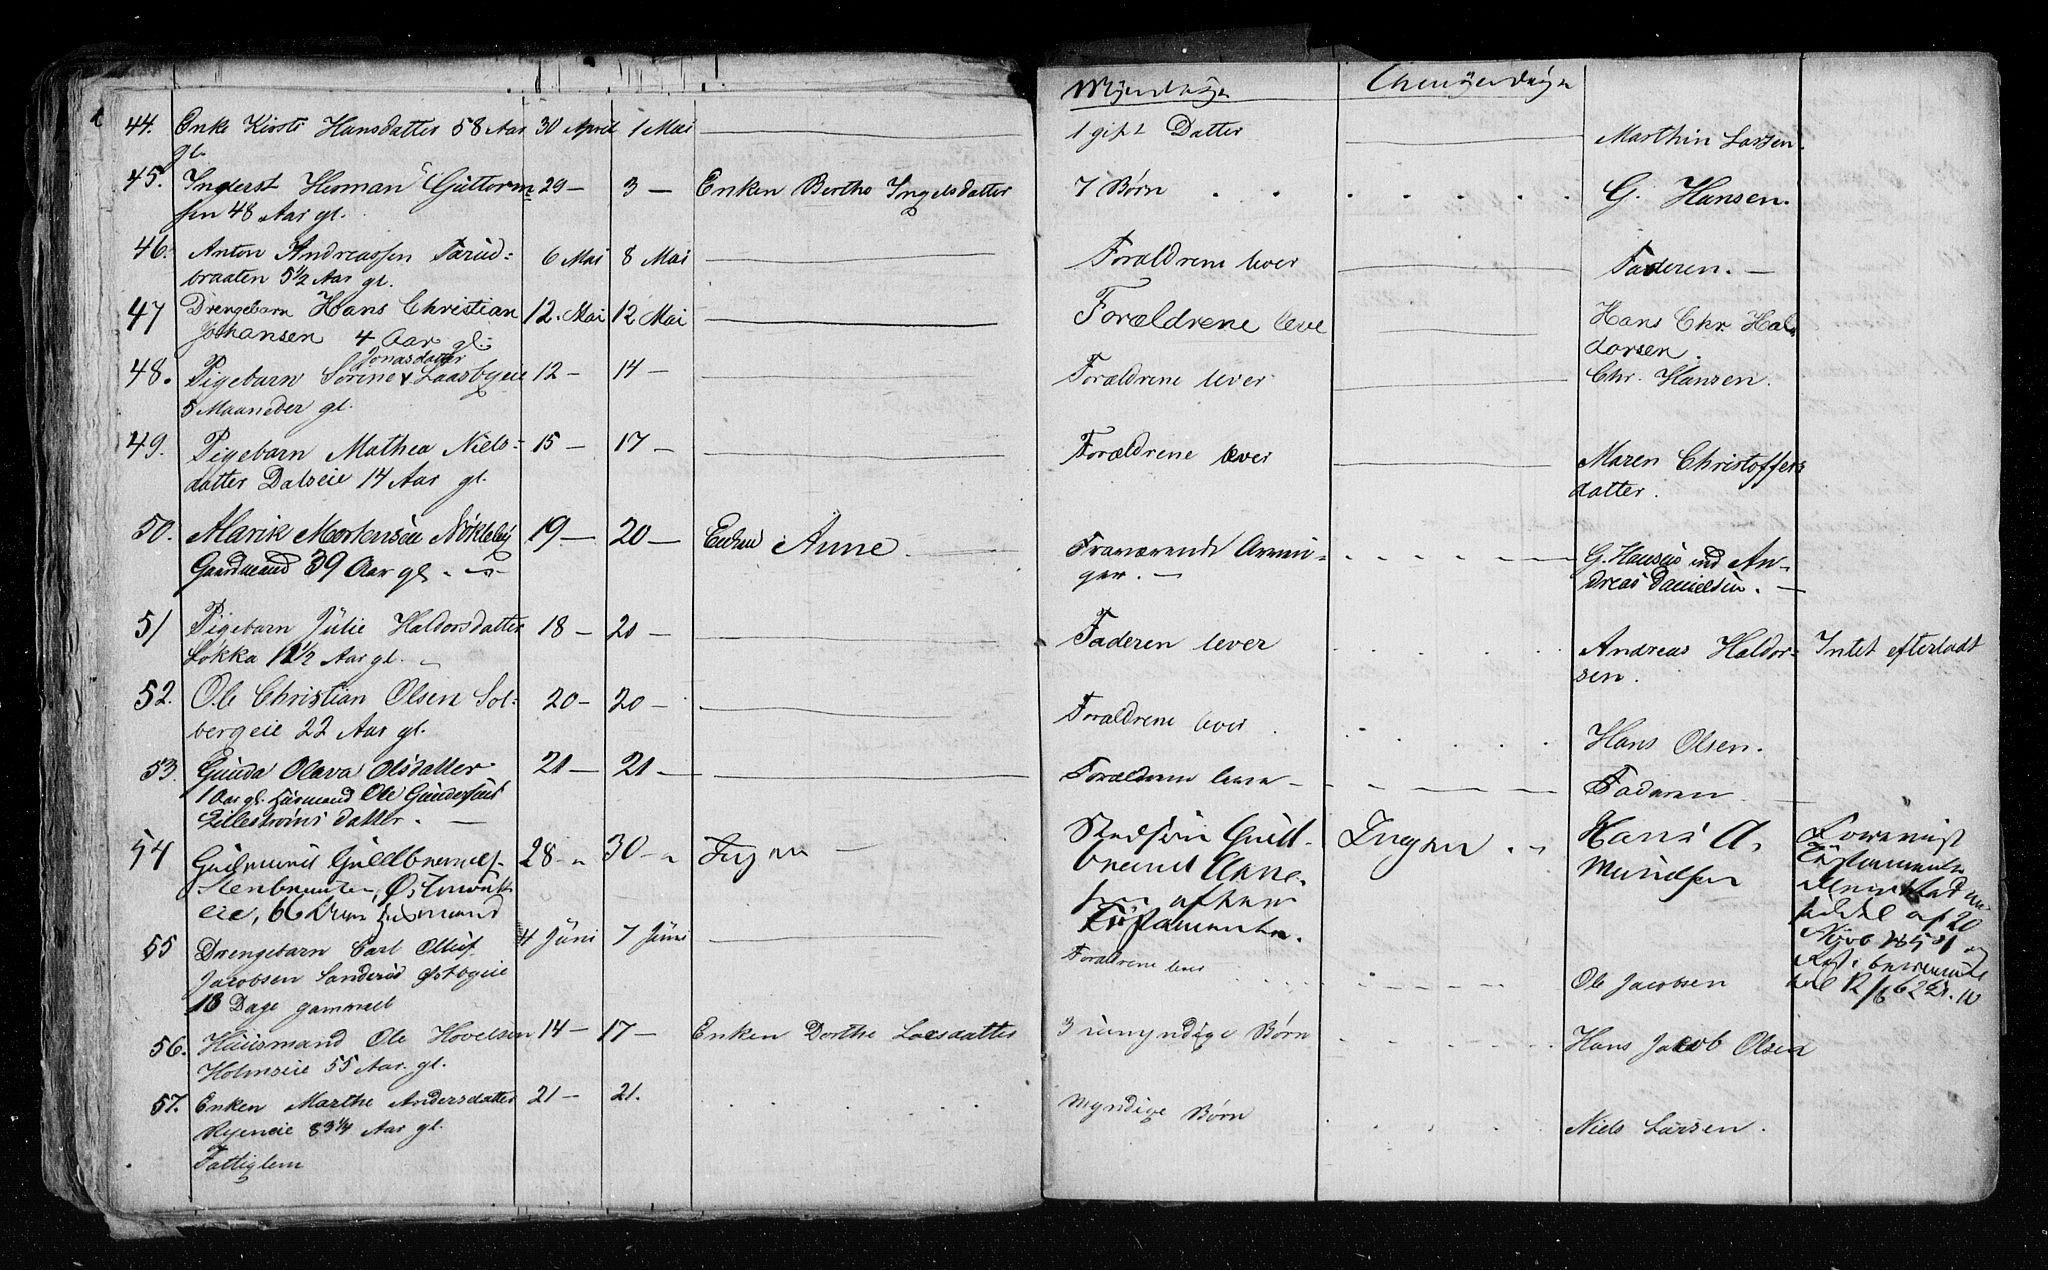 Myndige
Umyndige
44. Enke Kirsti Hansdatter 58 Aar 30 April 1 Mai — 1 gift Datter — Marthin Larsen.
gl.
45. Inderst Herman Guttorm= 29 — 3 — Enken Berthe Ingelsdatter 7 Børn . . . . . . G. Hansen.
sen 48 Aar gl.
46. Anton Andreassen Tarud= 6 Mai 8 Mai — Forældrene lever — Faderen. —
braaten 5½ Aar gl.
47 Drengebarn Hans Christian 12. Mai 12 Mai — Forældrene leve — Hans Chr. Hal=
Johansen 4 Aar gl. dorsen.
Jonasdatter
48. Pigebarn Sørine Laasbyeie 12 — 14 — — Forældrene lever — Chr. Hansen.
5 Maaneder gl.
49. Pigebarn Mathea Niels= 15 — 17 — — Forældrene lever — Maren Christoffers
datter Dalseie 14 Aar gl. datter.
50. Marik Mortensen Nøkleby 19 — 20 — Enken Anne. — Fraværende Arvin= — G. Hansen ind An=
Gaardmand 39 Aar gl. — ger. — dreas Danielsen. —
51 Pigebarn Julie Haldorsdatter 18 — 20 — — Faderen lever . . . . Andreas Haldor= Intet efterladt
Løkka 11½ Aar gl. — sen.
52. Ole Christian Olsen Sol= 20 — 20 — — Forældrene lever . . . . Hans Olsen.
bergeie 22 Aar gl.
53. Gunda Olava Olsdatter 21 — 21 — — Forældrene leve — — Faderen
1 Aar gl. Husmand Ole Gundersens
Lillestrøms datter. —
54 Gulbrand 28 - " 30 - " Ingen — Stedsøn Guld= Ingen . - Hans A.
brand Arne= Mundsen
Østmork=
eie, 66 Aar, Husmand
sen efter
Testamente.
Testamente
af 20
Novb 1851
12/6 62
55 Drengebarn Carl Oluf 4 Juni 7 Juni — Forældrene lever . . . . Ole Jacobsen
Jacobsen Sanderud Østbyeie
18 Dage gammel
56. Huusmand Ole Hovelsen 14 — 17 — Enken Dorthe Larsdatter 3 umyndige Børn . . . . Hans Jacob Olsen
Holmseie 55 Aar. gl.
57. Enken Marthe Andersdatter 21 — 21. . . . . Myndige Børn . . . . Niels Larsen.
Ryeneie 83¼ Aar gl.
Fattiglem